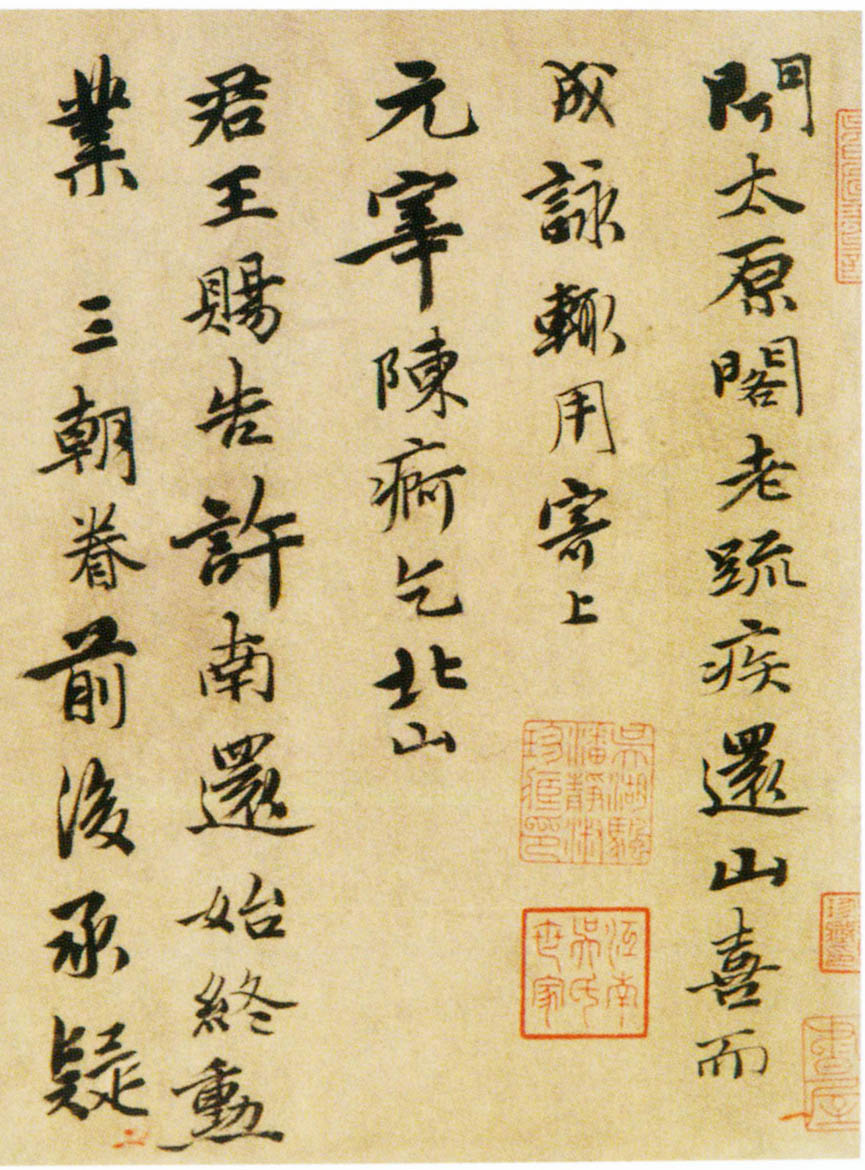 聞太原閣老疏疾還山喜而
成詠輒用寄上
元宰陳痾乞北山
君王賜告許南還始終勳
業 三朝眷前後承疑
吳湖颿
潘靜淑
珍藏印
江南
吳氏
世家
書屋